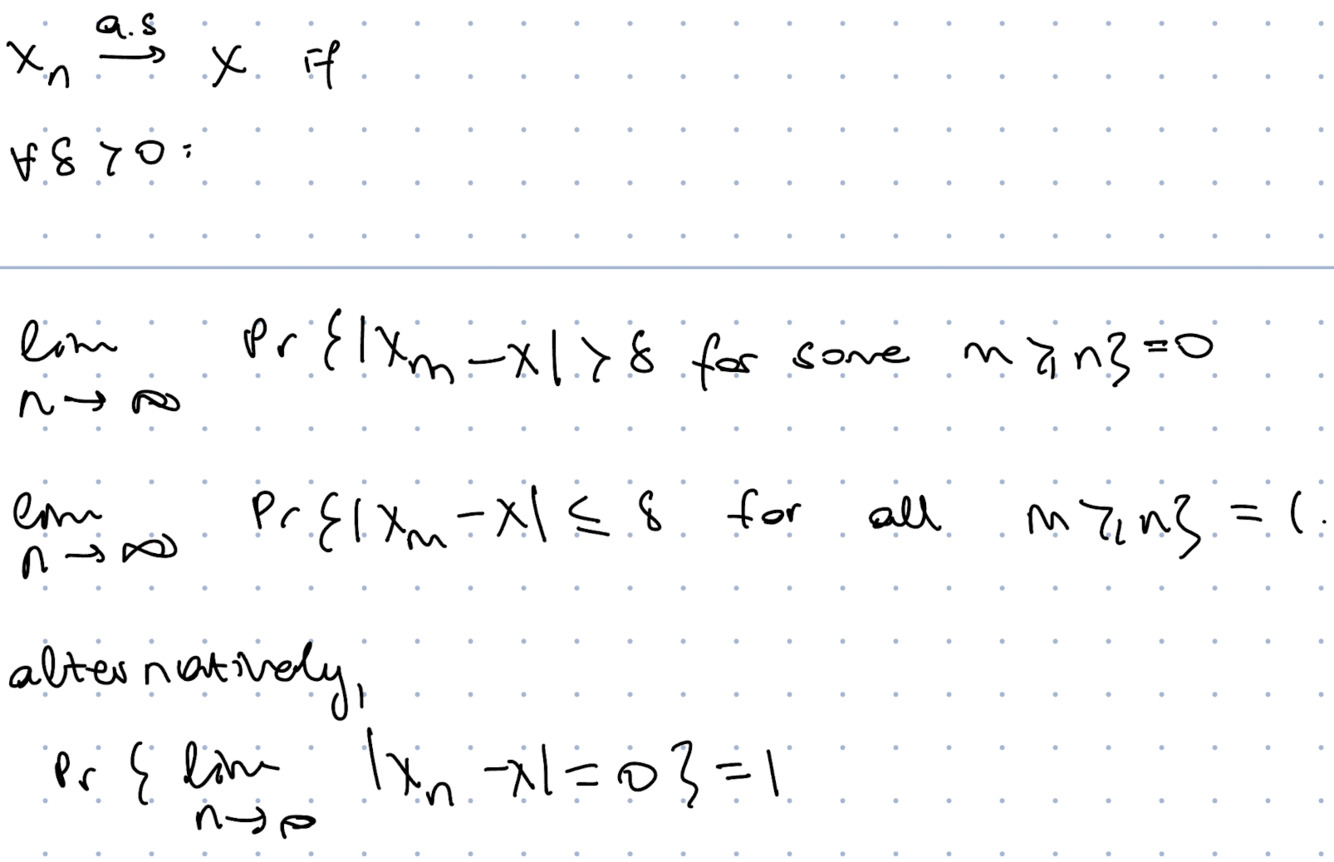 Xₙ →^{a.s} X if
∀δ>0:
lim_{n→∞} Pr{|Xₘ-X|>δ for some m≥n}=0
lim_{n→∞} Pr{|Xₘ-X|≤δ for all m≥n}=1.
alternatively,
Pr{lim_{n→∞} |Xₙ-X|=0}=1